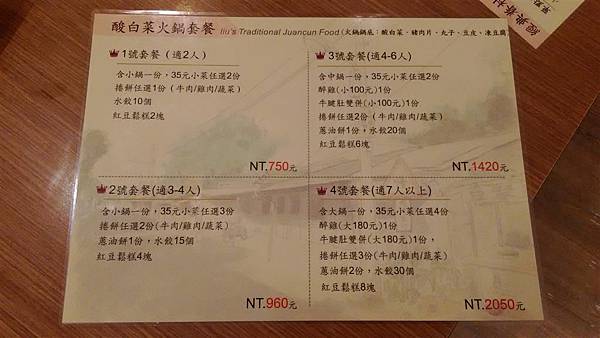 酸白菜火鍋套餐 liu's Traditional Juancun Food (火鍋鍋底：酸白菜、豬肉片、丸子、豆皮、凍豆腐
1號套餐（適2人）
含小鍋一份，35元小菜任選2份
捲餅任選1份（牛肉/雞肉/蔬菜）
水餃10個
紅豆鬆糕2塊
NT.750元
3號套餐(適4-6人)
含中鍋一份，35元小菜任選2份
醉雞(小100元)1份
牛腱肚雙併(小100元)1份
捲餅任選2份（牛肉/雞肉/蔬菜）
蔥油餅1份，水餃20個
紅豆鬆糕6塊
NT.1420元
2號套餐(適3-4人)
含小鍋一份，35元小菜任選3份
捲餅任選2份(牛肉/雞肉/蔬菜)
蔥油餅1份，水餃15個
紅豆鬆糕4塊
NT.960元
4號套餐(適7人以上)
含大鍋一份，35元小菜任選4份
醉雞(大180元)1份
牛腱肚雙併(大180元)1份，
捲餅任選3份(牛肉/雞肉/蔬菜)
蔥油餅2份，水餃30個
紅豆鬆糕8塊
NT.2050元